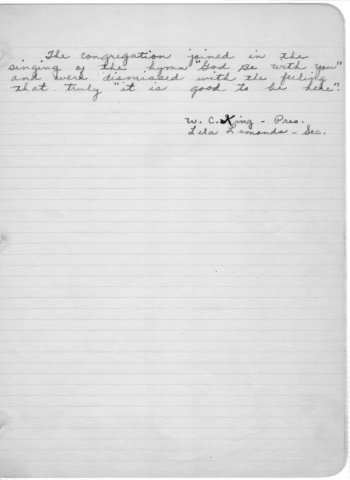 The congregation joined in the
singing of the hymn "God Be With You"
and were dismissed with the feeling
that truly "it is good to be here".
W. C. King - Pres.
Lela Simonds - Sec.